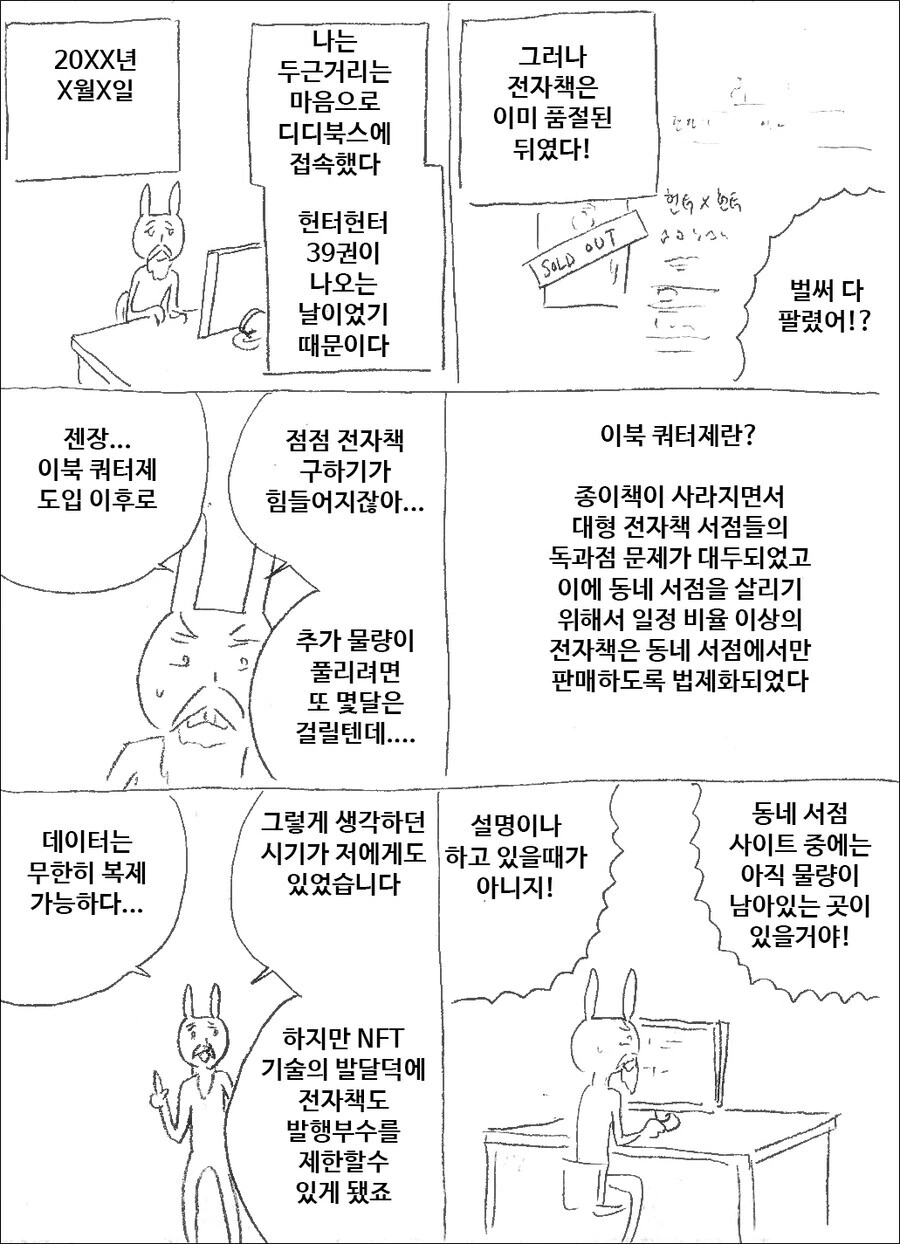 20XX년
X월X일
나는
두근거리는
마음으로
디디북스에
접속했다
헌터헌터
39권이
나오는
날이었기
때문이다
그러나
전자책은
이미 품절된
뒤였다!
헌터 X 헌터
SOLD OUT
벌써 다
팔렸어!?
젠장...
이북 쿼터제
도입 이후로
점점 전자책
구하기가
힘들어지잖아...
추가 물량이
풀리려면
또 몇달은
걸릴텐데....
이북 쿼터제란?
종이책이 사라지면서
대형 전자책 서점들의
독과점 문제가 대두되었고
이에 동네 서점을 살리기
위해서 일정 비율 이상의
전자책은 동네 서점에서만
판매하도록 법제화되었다
데이터는
무한히 복제
가능하다...
그렇게 생각하던
시기가 저에게도
있었습니다
하지만 NFT
기술의 발달덕에
전자책도
발행부수를
제한할수
있게 됐죠
설명이나
하고 있을때가
아니지!
동네 서점
사이트 중에는
아직 물량이
남아있는 곳이
있을거야!